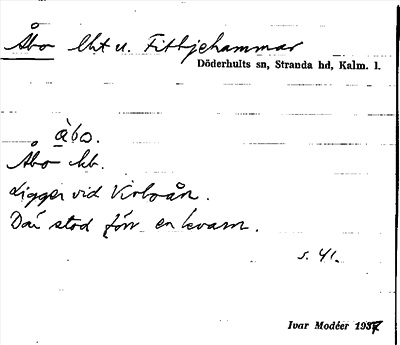 Åbo lht u. Fittjehammar
Döderhults sn, Stranda hd, Kalm. l.
àbo.
Åbo hb.
Ligger vid Virboån.
Där stod förr en kvarn.
s. 41.
Ivar Modéer 1937